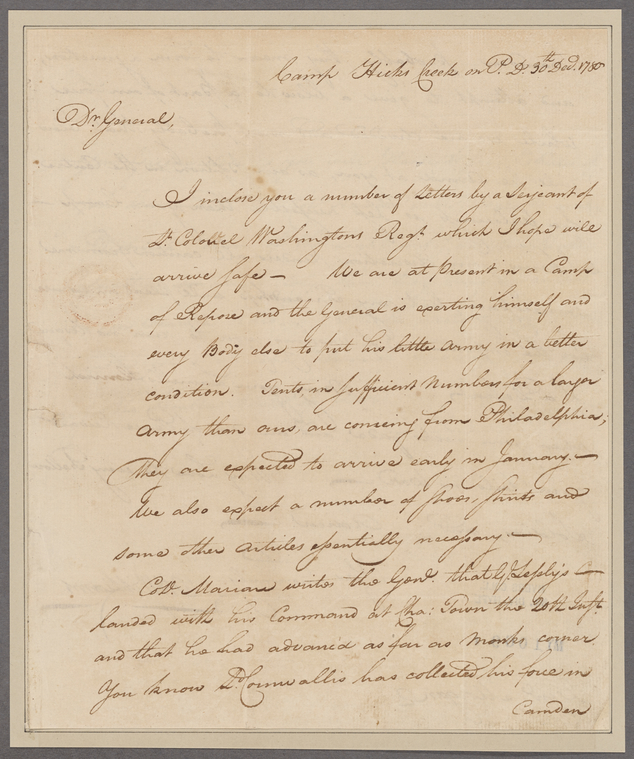 Camp Hicks Creek on P. D. 30th Decr. 1780
Dr. General,
I inclose you a number of Letters by a Serjeant of
Lt. Colonel Washingtons Regt. which I hope will
arrive safe — We are at Present in a Camp
of Repose and the General is exerting himself and
every Body else to put his little Army in a better
condition. Tents, in sufficient Numbers for a larger
Army than ours, are comeing from Philadelphia;
They are expected to arrive early in January. —
We also expect a number of Shoes, Shirts and
some other Articles essentially necessary. —
Colo. Marian writes the Genl. that Gl. Leslye
landed with his Command at Cha: Town the 20th Inst.
and that he had advanced as far as Monks corner
You know Ld. Cornwallis has collected his force in
Camden